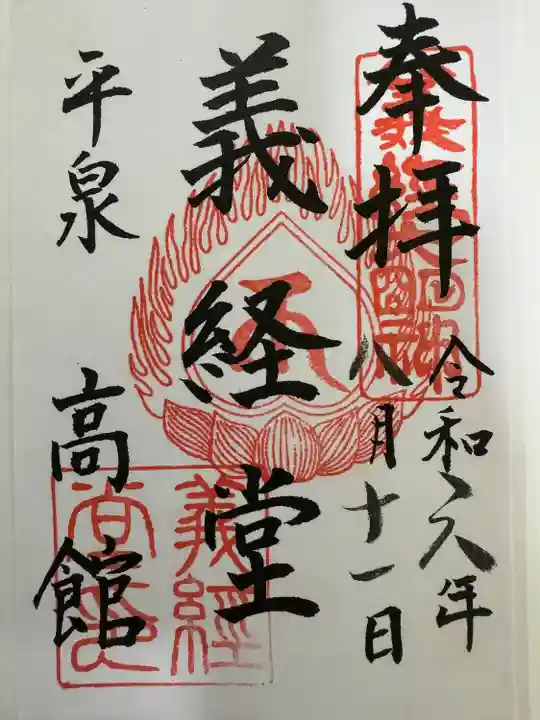 奉拝
令和六年
八月十一日
義経堂
平泉
高館
義経